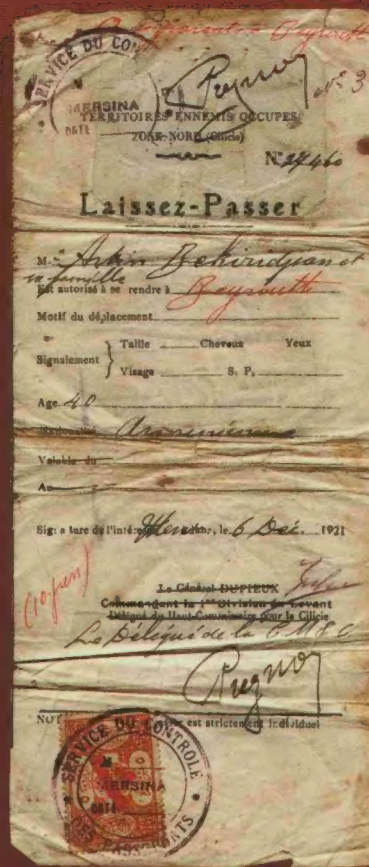 Beyrouth
SERVICE DU CON
Pregnoy
n° 3
MERSINA
DATE
TERRITOIRES ENNEMIS OCCUPES
ZONE NORD (Cilicie)
N° 27460
Laissez-Passer
M. Artin Bekiridjian et
sa famille
Est autorisé à se rendre à Beyrouth
Motif du déplacement
Signalement } Taille Cheveux Yeux
Visage S. P.
Age 40
Nationalité Arménienne
Valable du
Au
Signature de l'intéressé le 6 Déc. 1921
(10 pers)
Le Général DUFIEUX
Commandant la 1re Division du Levant
Délégué du Haut-Commissaire pour la Cilicie
Le Délégué de la
Pregnoy
NOT est strictement individuel
SERVICE DU CONTROLE
MERSINA
DATE
DES PASSEPORTS